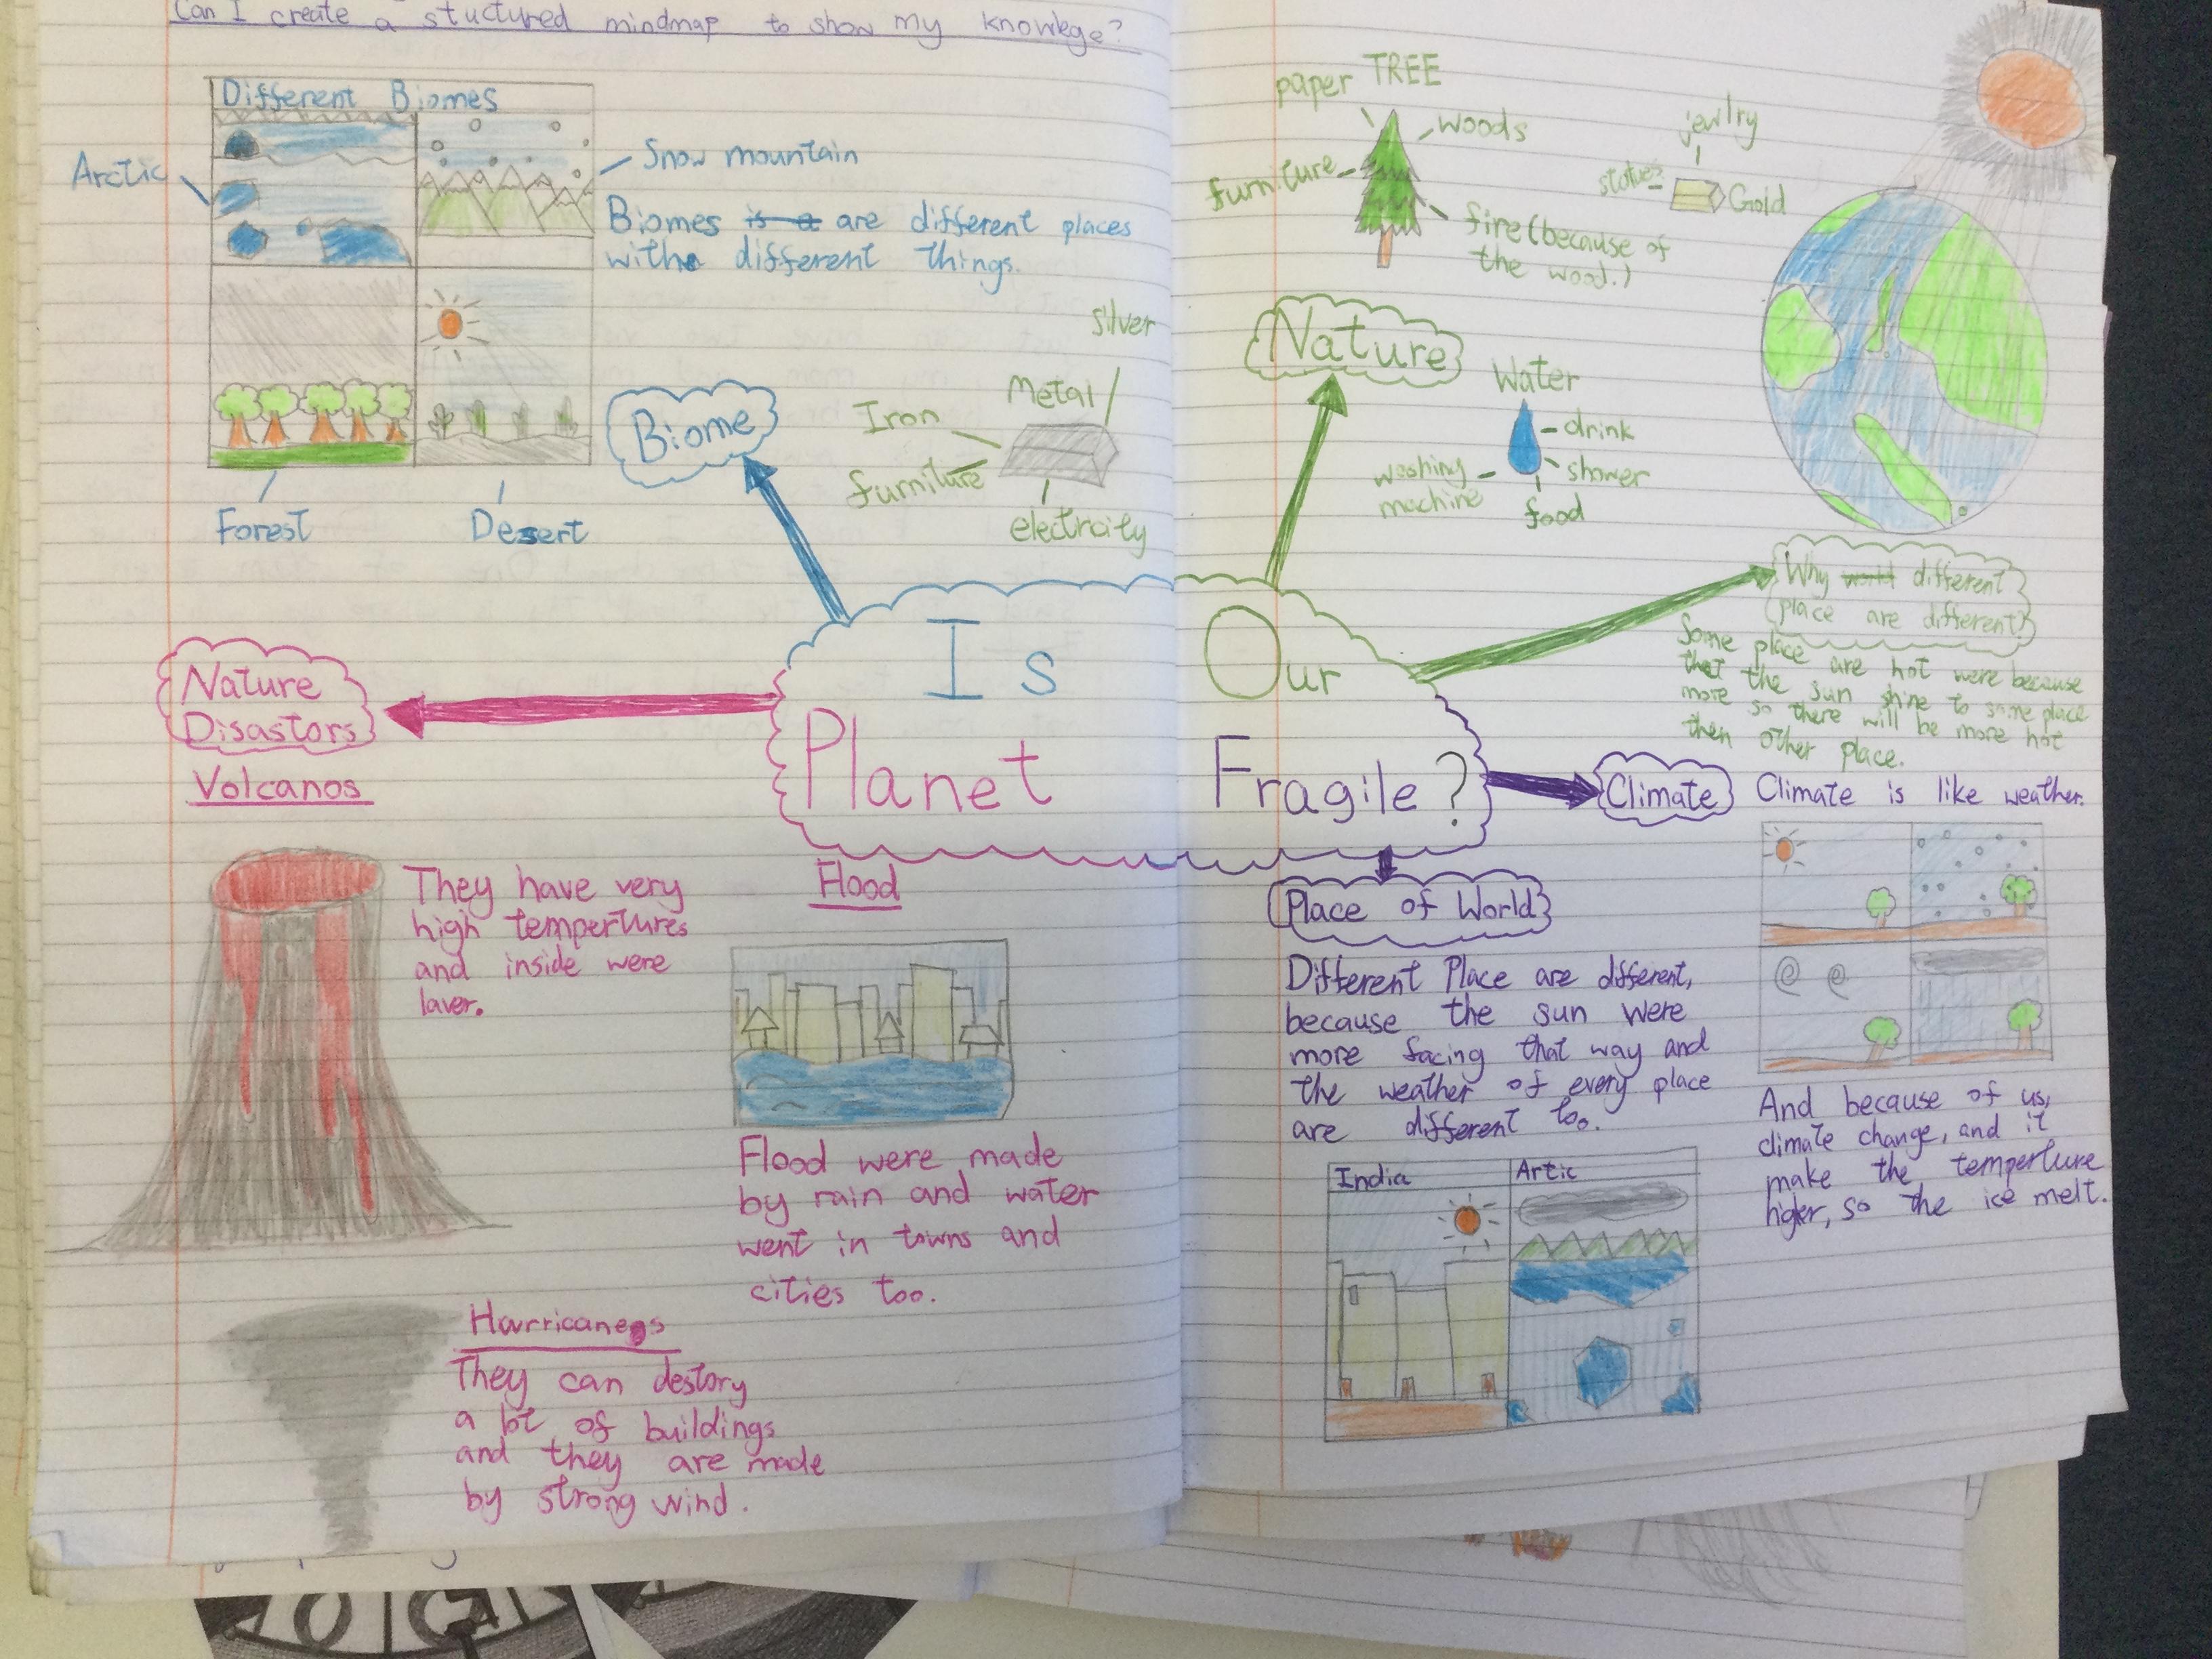 Can I create a stuctured mindmap to show my knowlege?
Different Biomes
Arctic
Snow mountain
Biomes is a are different places
with different things.
Forest
Desert
Biome
Metal
silver
Iron
furniture
electrcity
TREE
paper
woods
furniture
fire (because of
the wood.)
jewlry
statues
Gold
Nature
Water
drink
shower
food
washing
machine
Is Our
Planet Fragile?
Why world different
place are different?
Some place are hot were because
that the sun shine to some place
more so there will be more hot
then other place.
Climate
Climate is like weather.
And because of us,
climate change, and it
make the temperture
higher, so the ice melt.
Place of World
Different Place are different,
because the sun were
more facing that way and
the weather of every place
are different too.
India
Artic
Nature
Disastors
Volcanos
They have very
high tempertures
and inside were
laver.
Flood
Flood were made
by rain and water
went in towns and
cities too.
Harricanes
They can destory
a lot of buildings
and they are made
by strong wind.